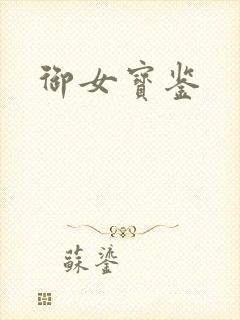 御女宝鉴
蘇鎏